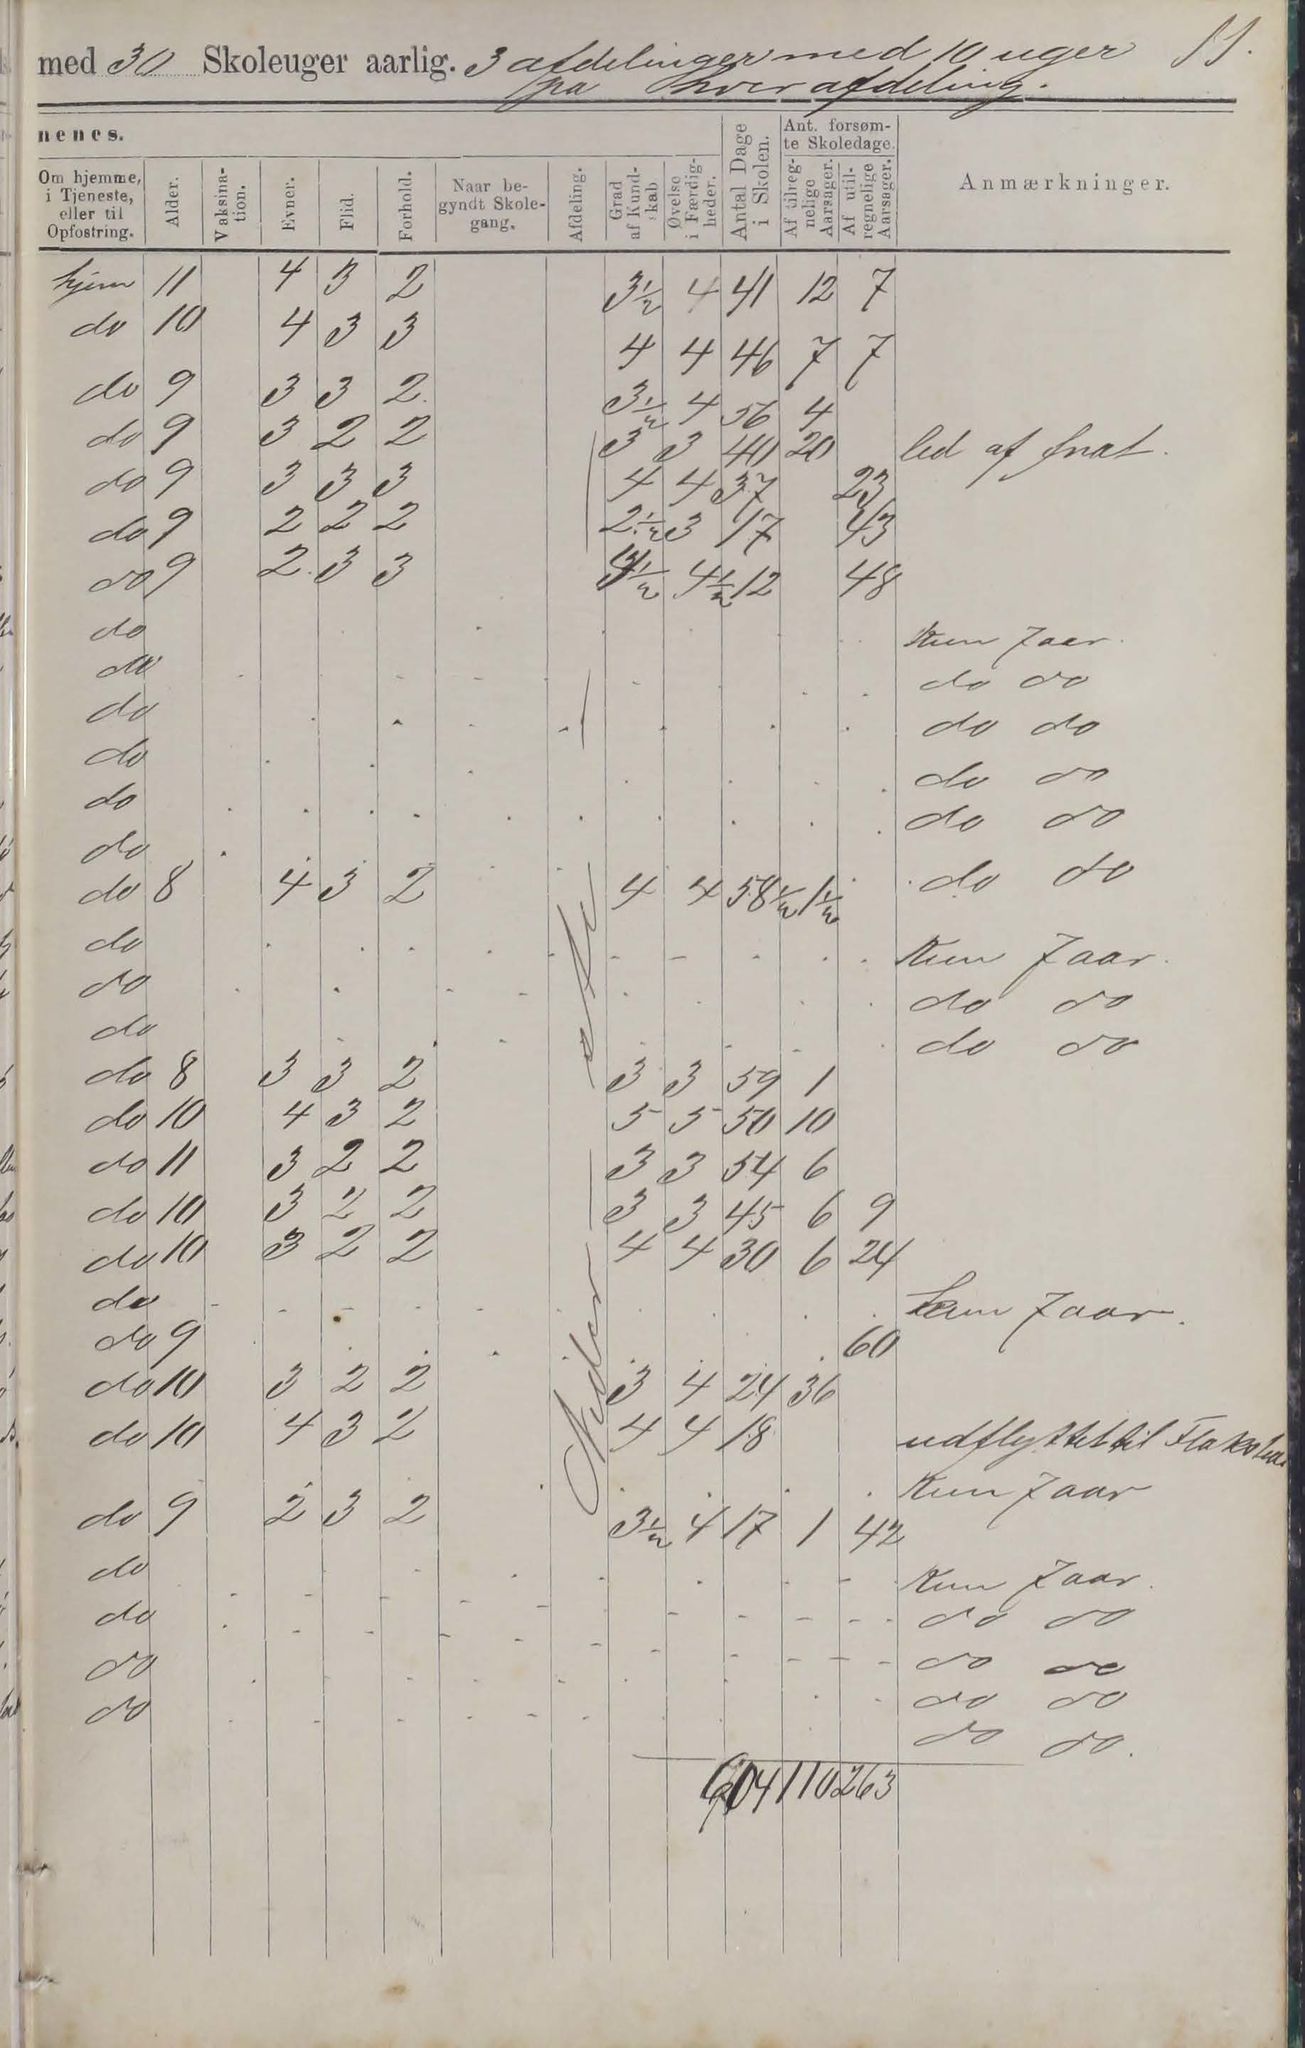 med 30 Skoleuger aarlig. 3 afdelinger med 10 uger
pa hver afdeling.
nenes.
Om hjemme, i Tjeneste, eller til Opfostring. Alder. Vaksination. Evner. Flid. Forhold. Naar begyndt Skolegang. Afdeling. Grad af Kundskab Øvelse i Færdigheder. Antal Dage i Skolen. Ant. forsømte Skoledage. Af tilregnelige Aarsager. Af utilregnelige Aarsager. Anmærkninger.
hjem 11 4 3 2 3½ 4 41 12 7
do 10 4 3 3 4 4 46 7 7
do 9 3 3 2 3½ 4 56 4
do 9 3 2 2 3 3 40 20 led af fnat.
do 9 3 3 3 4 4 37 23
do 9 2 2 2 2½ 3 17 43
do 9 2 3 3 ½ 4½ 12 48
do Kun 7 aar.
do do do
do do do
do do do
do do do
do do do
do 8 4 3 2 4 4 58½ 1½
do Kun 7 aar.
do do do
do do do
do 8 3 3 2 3 3 59 1
do 10 4 3 2 5 5 50 10
do 11 3 2 2 3 3 54 6
do 10 3 2 2 3 3 45 6 9
do 10 3 2 2 4 4 30 6 24
do kun 7 aar.
do 9 60
do 10 3 2 2 3 4 24 36
do 10 4 3 2 4 4 18 udflyttet til
Kun 7 aar
do 9 2 3 2 3½ 4 17 1 42
do Kun 7 aar.
do do do
do do do
do do do
do do.
604 110 263